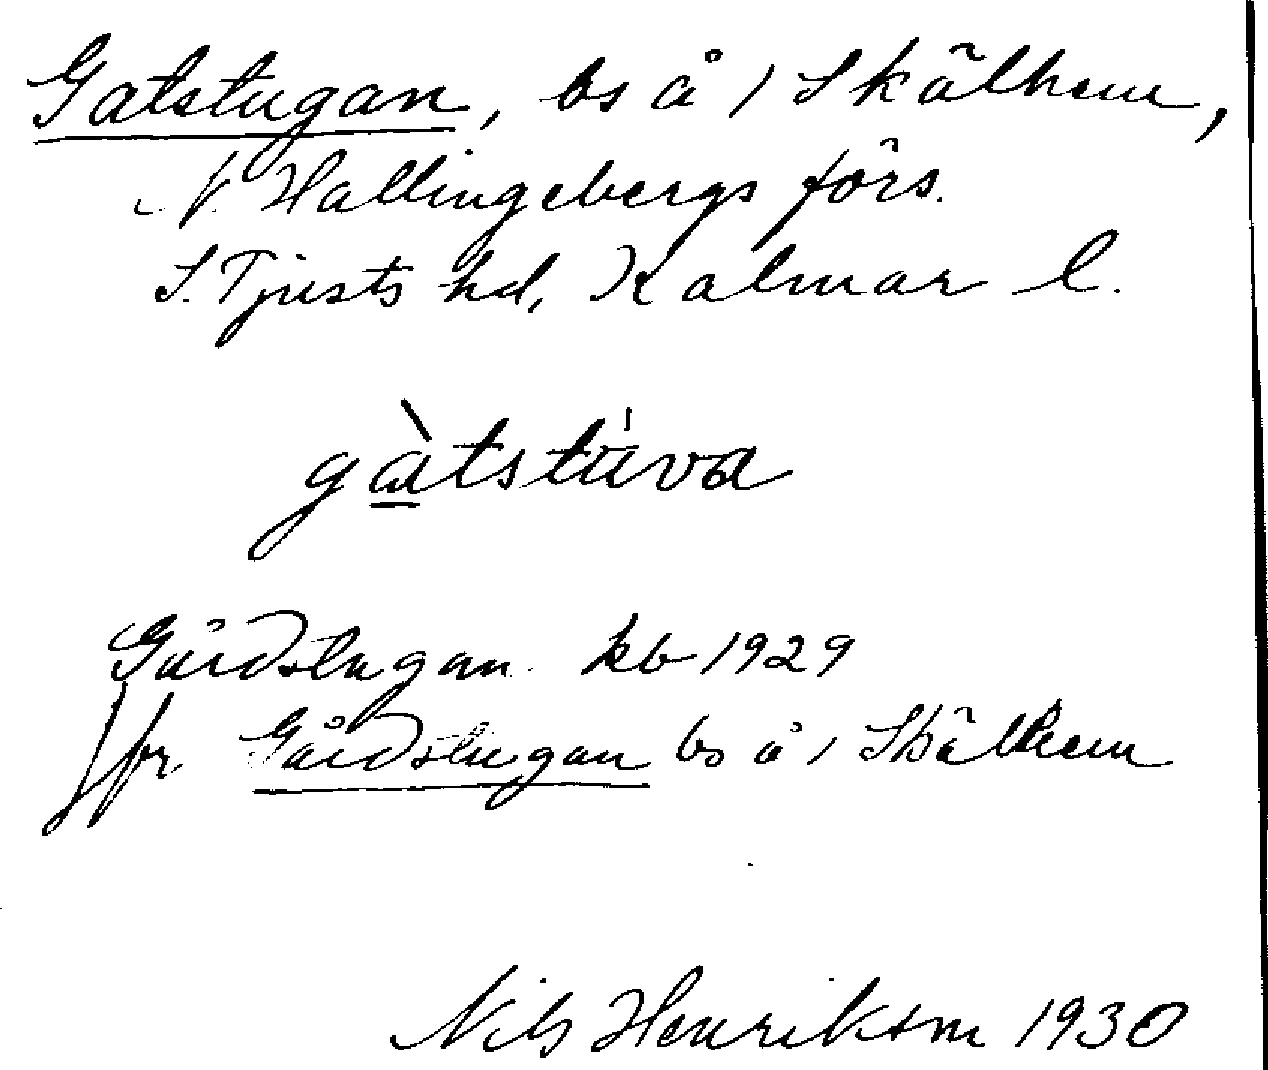 Gatstugan, bs å / Skälhem,
N. Hallingebergs förs.
S. Tjusts hd, Kalmar l.
gàtstúva
Gårdstugan kb 1929
Jfr Gårdstugan bs å / Skälhem
Nils Henrikson 1930